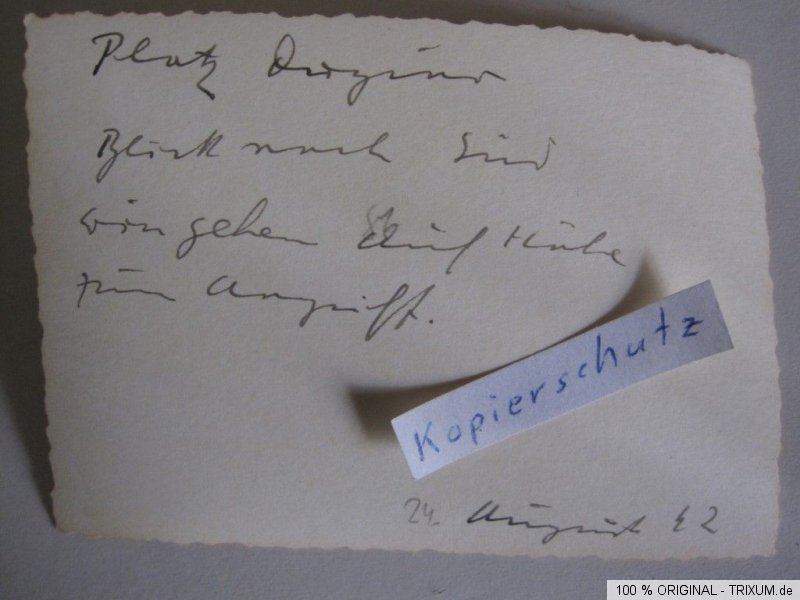 Platz Dugino
Blick nach Süd
wir gehen auf Höhe
zum Angriff.
Kopierschutz
24. August 42
100 % ORIGINAL - TRIXUM.de